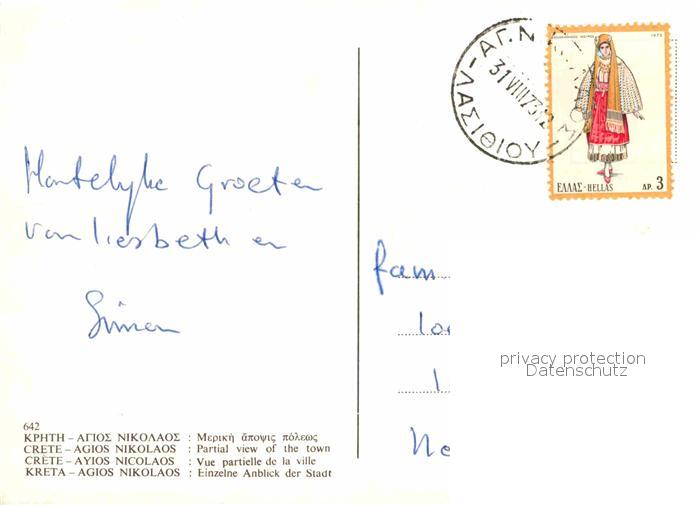 ΑΓ.Ν
31 VIII 73.12
ΕΛΛΑΣ-HELLAS ΔΡ. 3
1973
Hartelijke Groeten
van Liesbeth en
Simon
fam
privacy protection
Datenschutz
Ne
642
ΚΡΗΤΗ – ΑΓΙΟΣ ΝΙΚΟΛΑΟΣ : Μερική ἄποψις πόλεως
CRETE – AGIOS NIKOLAOS : Partial view of the town
CRÈTE – AYIOS NICOLAOS : Vue partielle de la ville
KRETA – AGIOS NIKOLAOS : Einzelne Anblick der Stadt